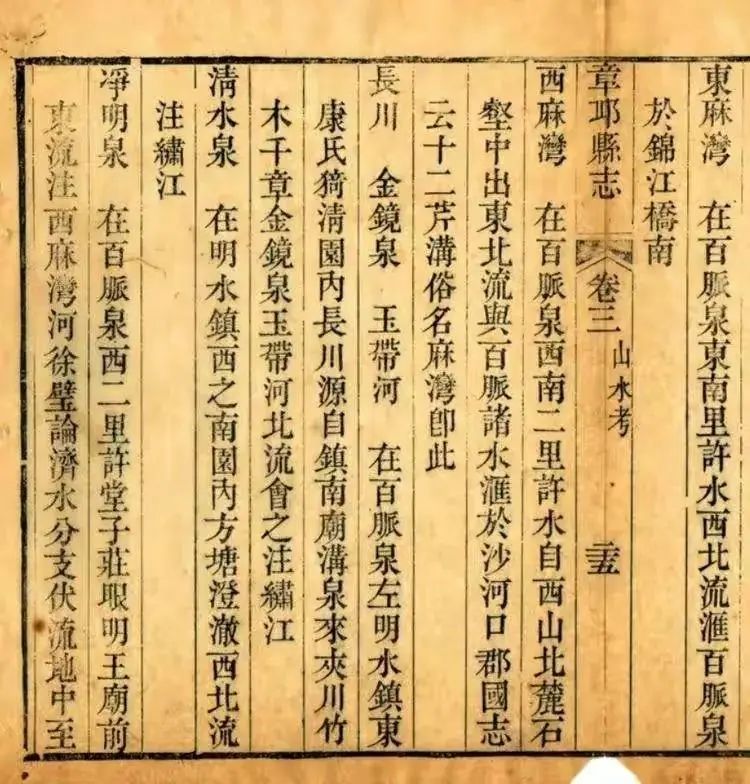 東麻灣　在百脈泉東南里許水西北流滙百脈泉
於錦江橋南
章邱縣志　卷三　山水考　二十五
西麻灣　在百脈泉西南二里許水自西山北麓石
壑中出東北流與百脈諸水滙於沙河口郡國志
云十二芹溝俗名麻灣卽此
長川　金鏡泉　玉帶河　在百脈泉左明水鎮東
康氏猗清園內長川源自鎮南廟溝泉來夾川竹
木千章金鏡泉玉帶河北流會之注繡江
清水泉　在明水鎮西之南園內方塘澄澈西北流
注繡江
淨明泉　在百脈泉西二里許堂子莊眼明王廟前
東流注西麻灣河徐璧論濟水分支伏流地中至